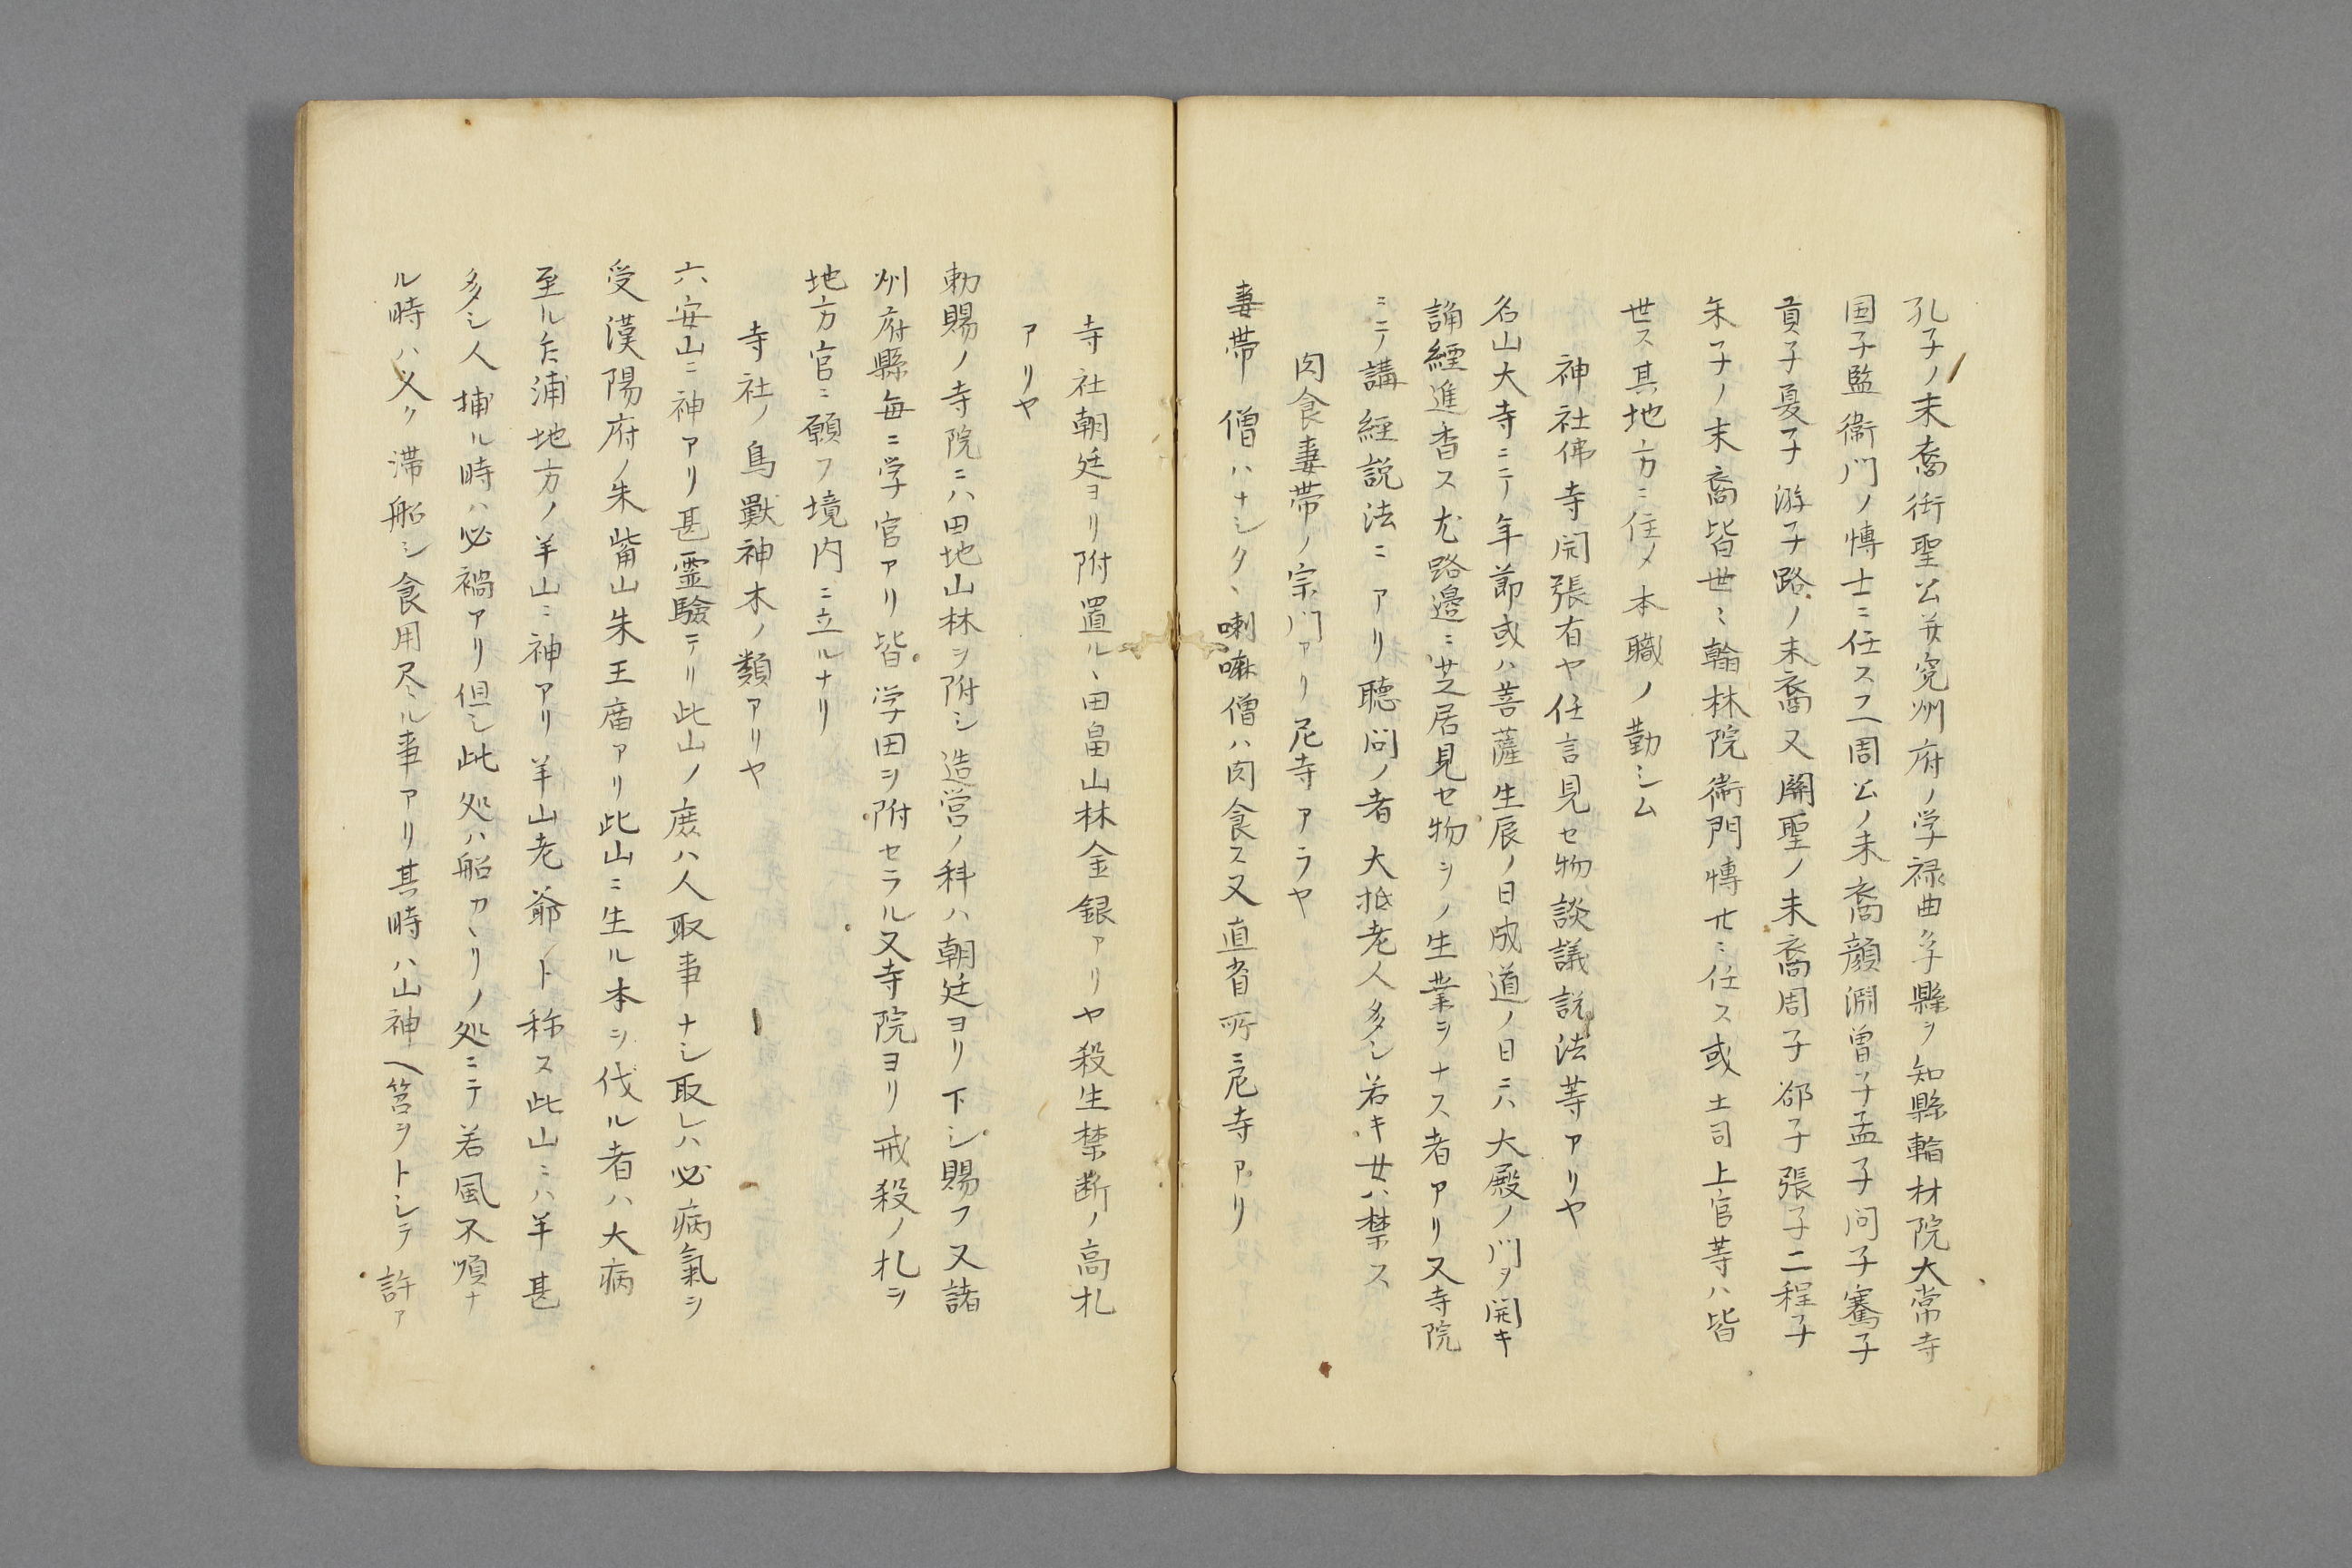 孔子ノ末裔衍聖公并兗州府ノ学禄曲阜縣ヲ知縣輪林院大常寺
国子監衛門ノ博士ニ任ス又周公ノ末裔顔淵曽子孟子問子騫子
貢子夏子游子路ノ末裔又関聖ノ末裔周子邵子張子二程子
朱子ノ末裔皆世ミ翰林院衛門博士ニ任ス或土司上官等ハ皆
世ス其地方ニ住メ本職ノ勤シム
神社佛寺開張有ヤ任言見セ物談議説法等アリヤ
名山大寺ニテ年節或ハ菩薩生辰ノ日成道ノ日ニハ大殿ノ門ヲ開キ
誦經進香ス尤路邉ニ芝居見セ物シノ生業ヲナス者アリ又寺院
ニテ講經説法ニアリ聴問ノ者大抵老人多シ若キ女ハ禁ス
肉食妻帯ノ宗門アリ尼寺アラヤ
妻帯僧ハナシ久ゝ喇嘛僧ハ肉食ス又直省所ニ尼寺アリ
寺社朝廷ヨリ附置ルヽ田畠山林金銀アリヤ殺生禁断ノ高札
アリヤ
勅賜ノ寺院ニハ田地山林ヲ附シ造営ノ料ハ朝廷ヨリ下シ賜フ又諸
州府縣毎ニ学官アリ皆学田ヲ附セラル又寺院ヨリ戒殺ノ札ヲ
地方官ニ願フ境内ニ立ルナリ
寺社ノ鳥獸神木ノ類アリヤ
六安山ニ神アリ甚霊驗テリ此山ノ鹿ハ人取事ナシ取レハ必病氣シ
受漢陽府ノ朱觜山朱王廟アリ此山ニ生ル木ヲ伐ル者ハ大病
至ル乍浦地方ノ羊山ニ神アリ羊山老爺ト称ス此山ニハ羊甚
多シ人捕ル時ハ必禍アリ但シ此処ハ船カヽリノ処ニテ若風不順ナ
ル時ハ久ク滞船シ食用尽ル事アリ其時ハ山神ヘ筶ヲトシテ許ア